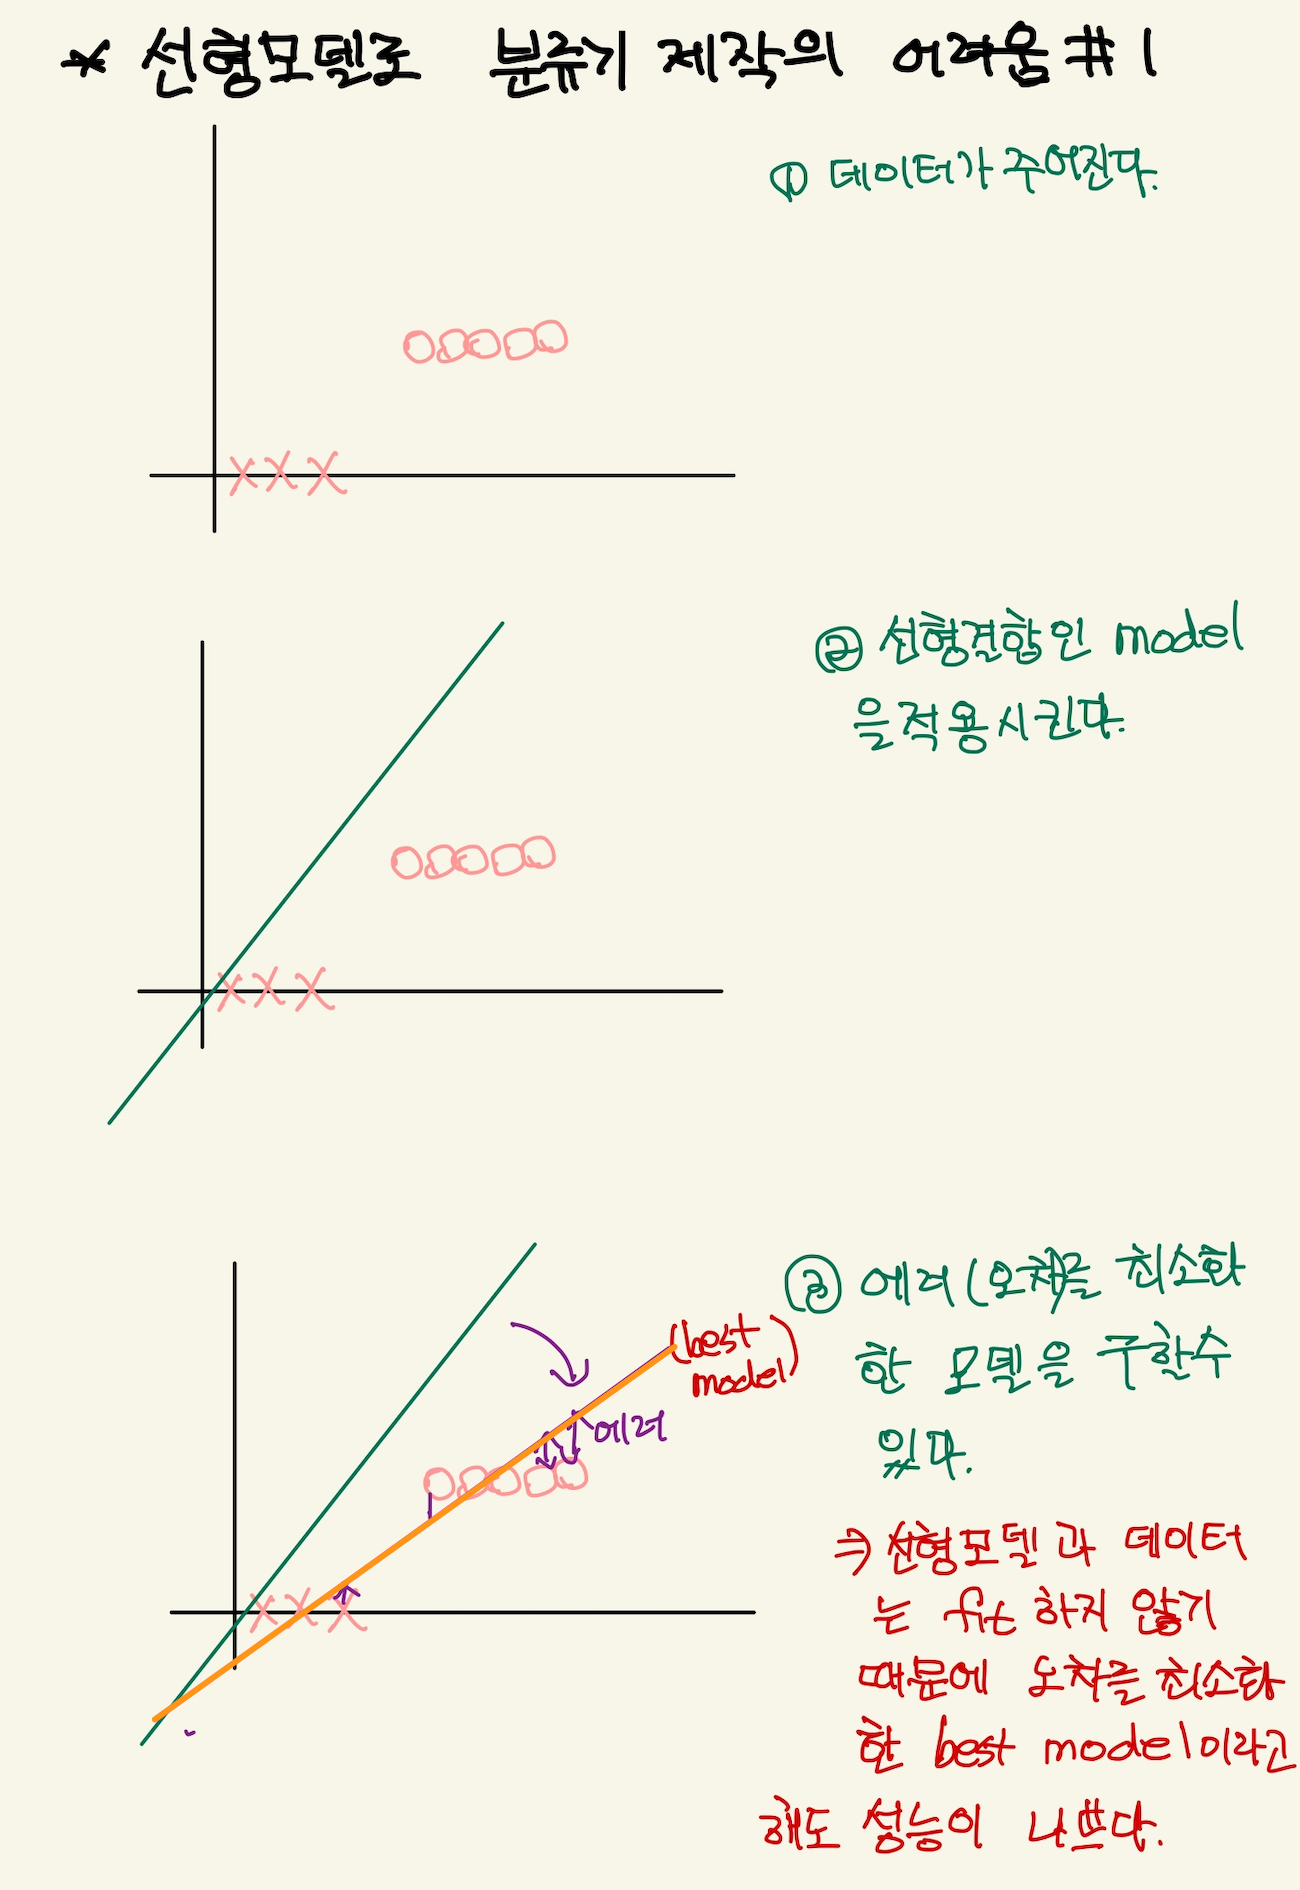 * 선형모델로 분류기 제작의 어려움 #1
① 데이터가 주어진다.
② 선형결합인 model
을 적용시킨다.
③ 에러(오차)를 최소화
한 모델을 구할수
있다.
(best
model)
에러
⇒ 선형모델과 데이터
는 fit 하지 않기
때문에 오차를 최소화
한 best model이라고
해도 성능이 나쁘다.